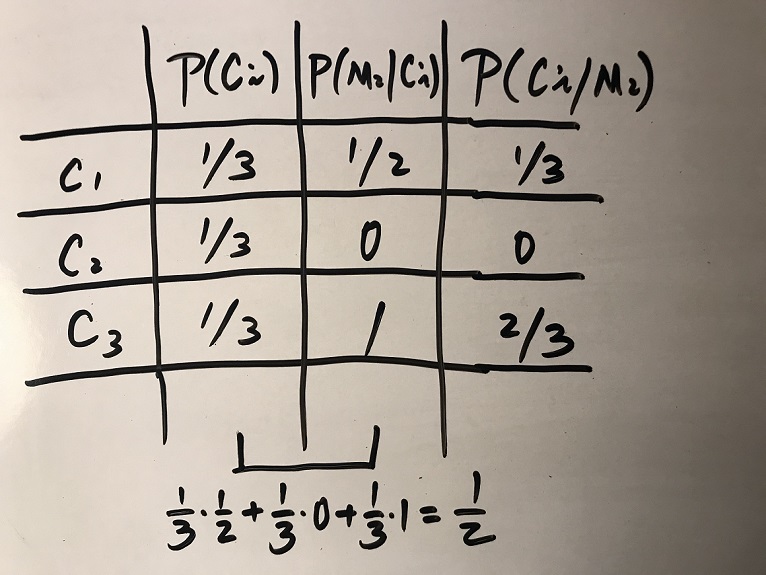 P(Ci) P(M₂|Ci) P(Ci/M₂)
C₁ 1/3 1/2 1/3
C₂ 1/3 0 0
C₃ 1/3 1 2/3
1/3·1/2+1/3·0+1/3·1=1/2